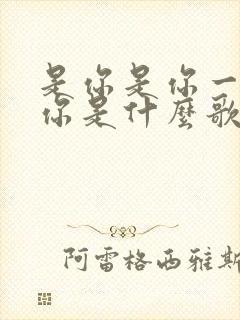 是你是你一
你是什麼歌
阿雷格西雅斯